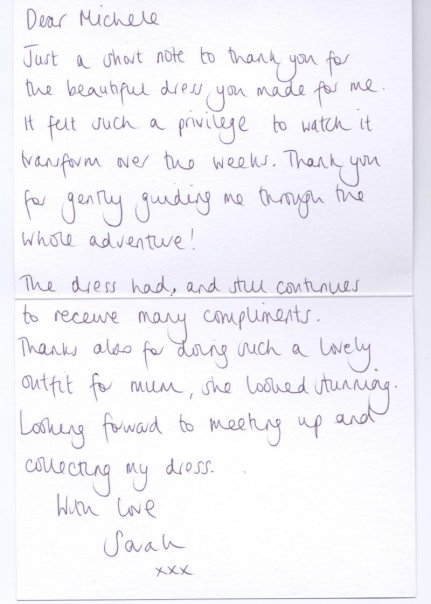 Dear Michele
Just a short note to thank you for
the beautiful dress you made for me.
It felt such a privilege to watch it
transform over the weeks. Thank you
for gently guiding me through the
whole adventure!
The dress had, and still continues
to receive many compliments.
Thanks also for doing such a lovely
outfit for mum, she looked stunning.
Looking forward to meeting up and
collecting my dress.
With love
Sarah
xxx